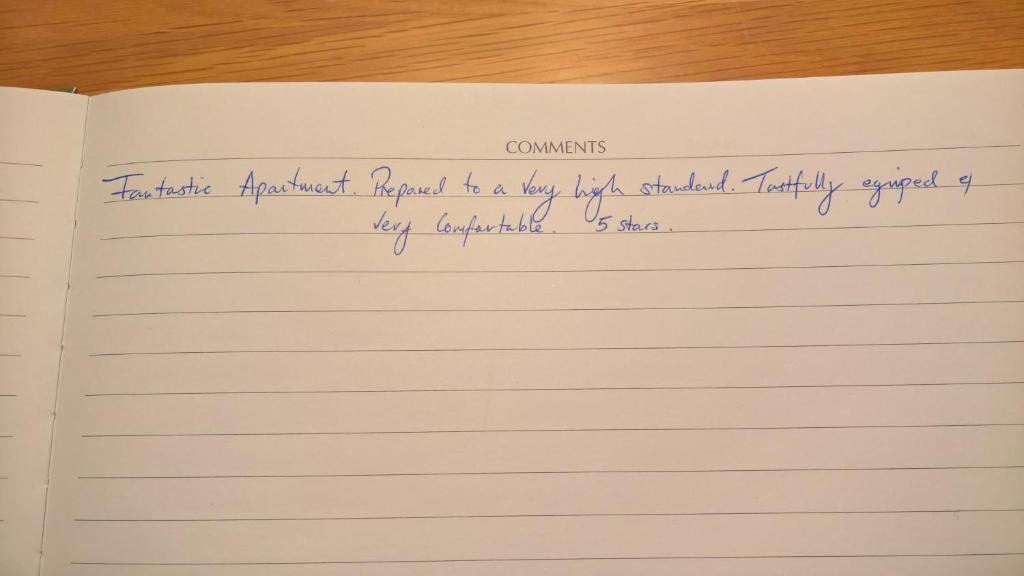 COMMENTS
Fantastic Apartment. Prepared to a very high standard. Tastfully equiped &
very Comfortable. 5 stars.